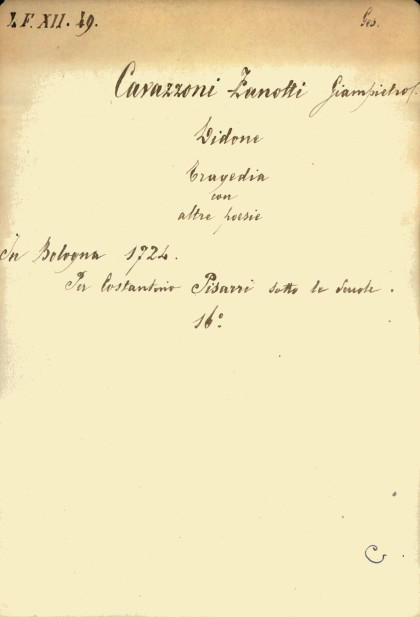 L F. XII. 49. Ges.
Cavazzoni Zanotti Giampietro.
Didone
Tragedia
con
altre poesie
In Bologna 1724.
Per Costantino Pisarri sotto le Scuole.
16°
C.